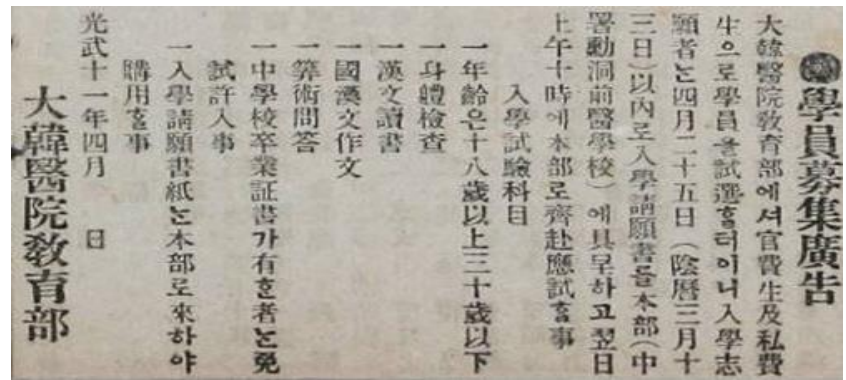 學員募集廣告
大韓醫院敎育部에셔官費生及私費
生으로學員을試選ᄒᆞ터이니入學志
願者ᄂᆞᆫ四月二十五日(陰曆三月十
三日)以內로入學請願書를本部(中
署動洞前醫學校)에具呈하고翌日
上午十時에本部로齊赴應試ᄒᆞᆯ事
入學試驗科目
一年齡은十八歲以上三十歲以下
一身體檢査
一漢文讀書
一國漢文作文
一算術問答
一中學校卒業証書가有ᄒᆞᆫ者ᄂᆞᆫ免
試許入事
一入學請願書紙ᄂᆞᆫ本部로來하야
購用ᄒᆞᆯ事
光武十一年四月 日
大韓醫院敎育部